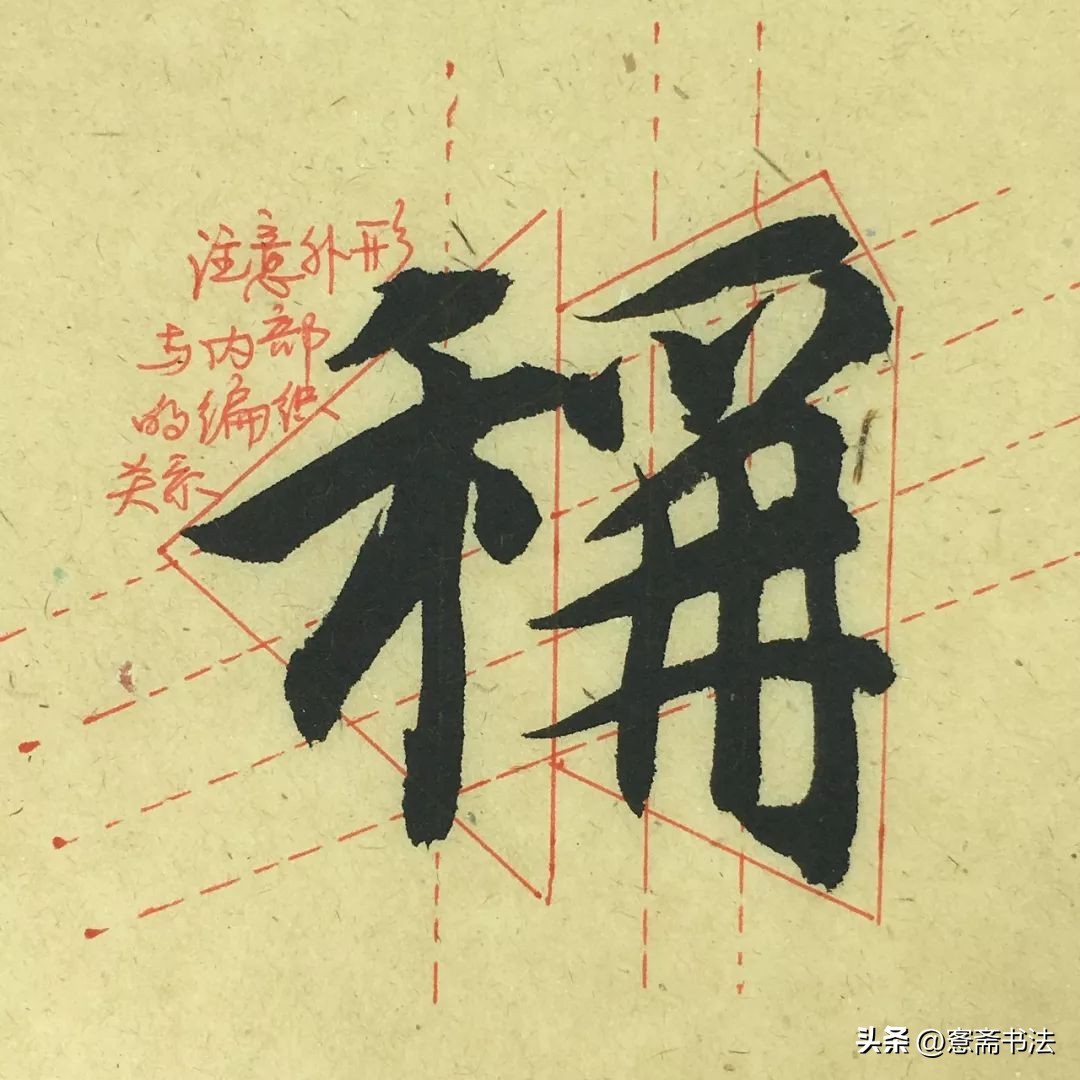 注意外形
与内部
的编织
关系
稱
头条@窓斋书法